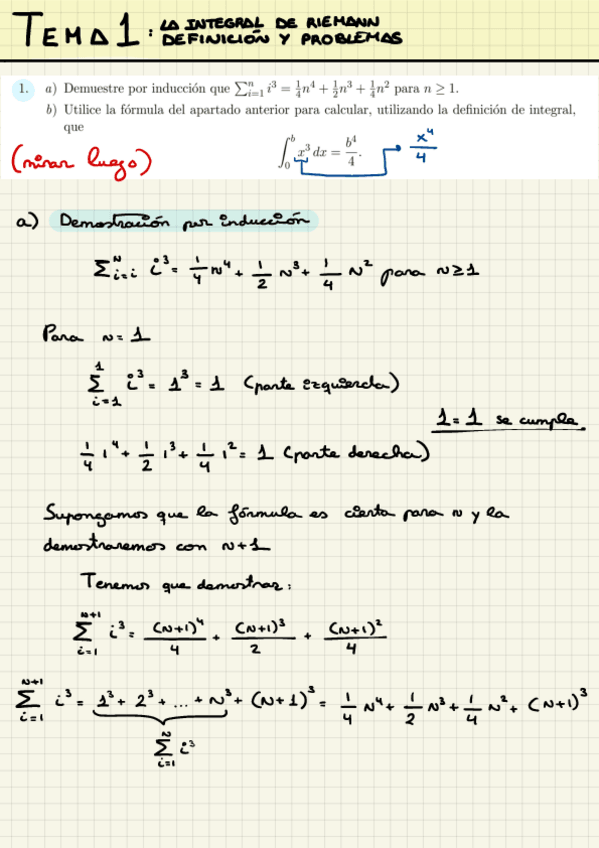 TEMA 1: LA INTEGRAL DE RIEMANN
DEFINICIÓN Y PROBLEMAS
1. a) Demuestre por inducción que ∑ⁿᵢ₌₁ i³ = ¼n⁴ + ½n³ + ¼n² para n ≥ 1.
b) Utilice la fórmula del apartado anterior para calcular, utilizando la definición de integral,
que
(mirar luego) ∫₀ᵇ x³ dx = b⁴/4. x⁴/4
a) Demostración por inducción
∑ᴺᵢ₌ᵢ i³ = 1/4 N⁴ + 1/2 N³ + 1/4 N² para N ≥ 1
Para N = 1
∑¹ᵢ₌₁ i³ = 1³ = 1 (parte izquierda)
1 = 1 se cumple.
1/4 1⁴ + 1/2 1³ + 1/4 1² = 1 (parte derecha)
Supongamos que la fórmula es cierta para N y la
demostraremos con N+1
Tenemos que demostrar:
∑ᴺ⁺¹ᵢ₌₁ i³ = (N+1)⁴/4 + (N+1)³/2 + (N+1)²/4
∑ᴺ⁺¹ᵢ₌₁ i³ = 1³ + 2³ + ... + N³ + (N+1)³ = 1/4 N⁴ + 1/2 N³ + 1/4 N² + (N+1)³
∑ᴺᵢ₌₁ i³